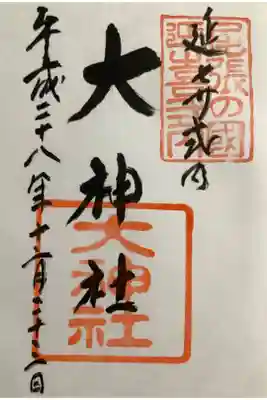 延喜式内
尾張の國
延喜式内
大神社
大神社
平成二十八年十一月二十三日